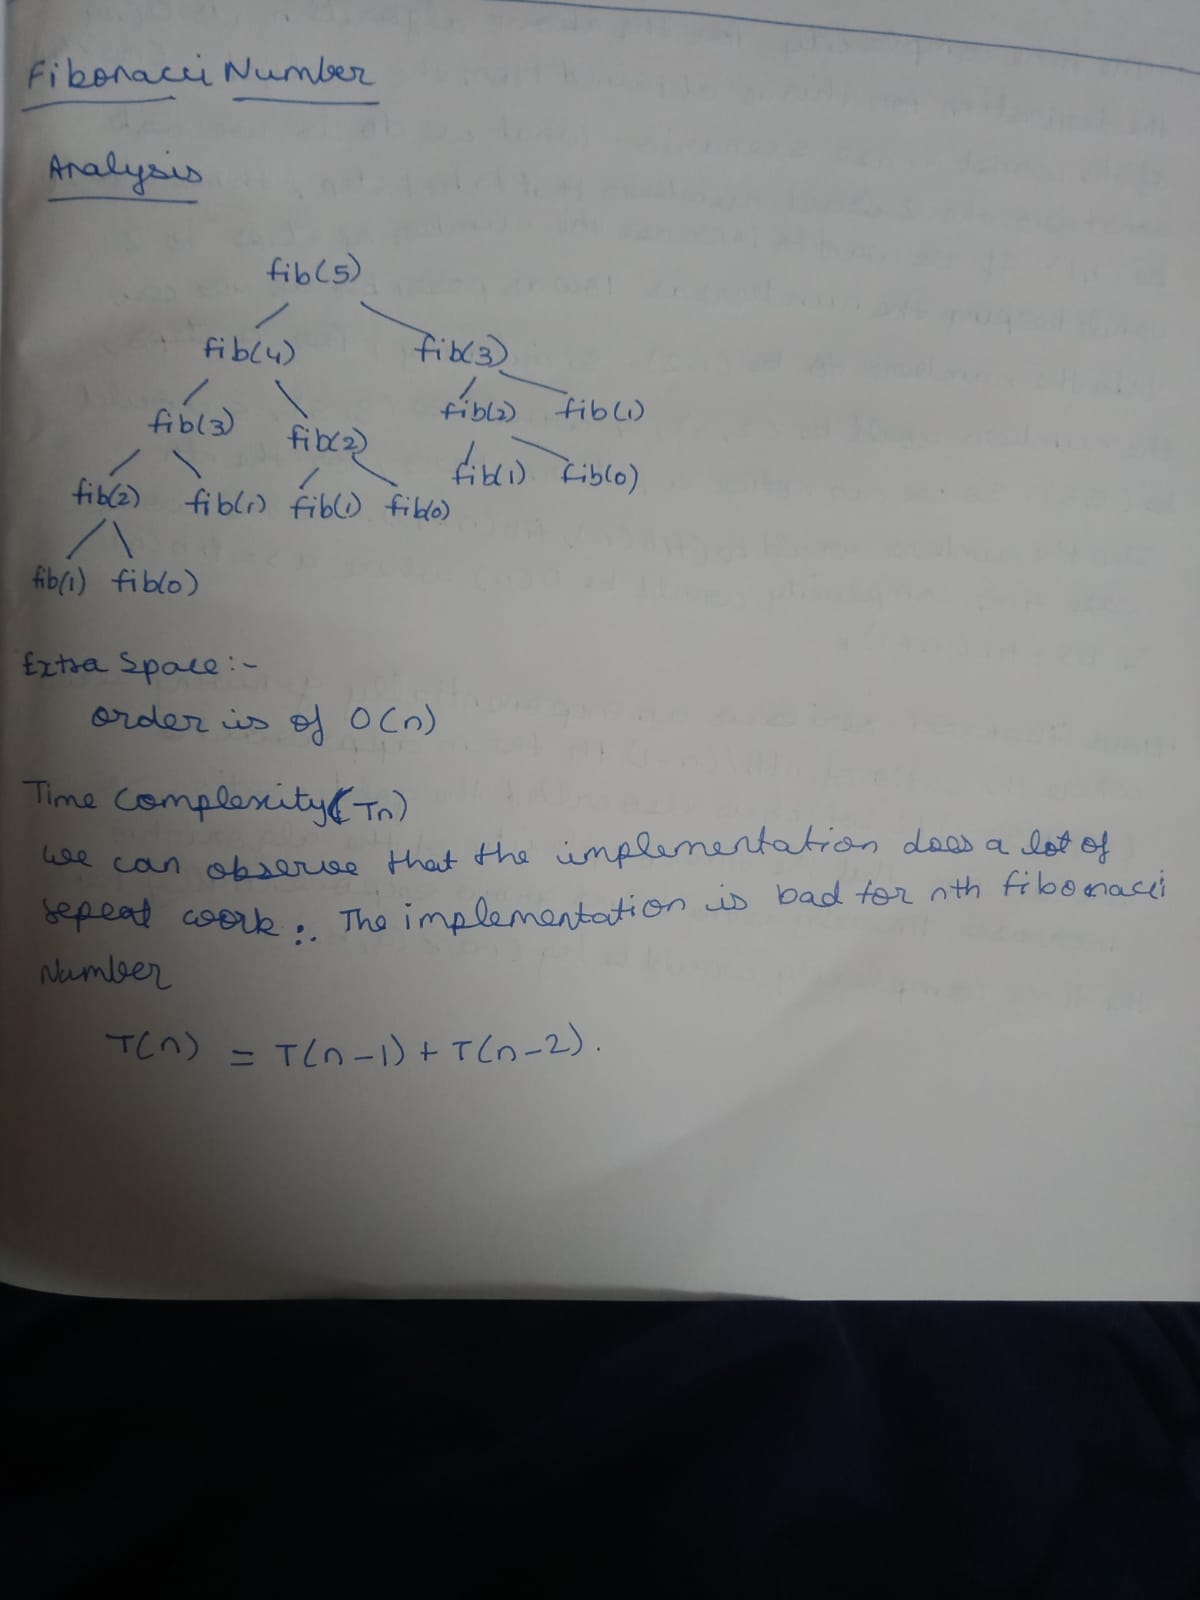 Fibonacci Number
Analysis
fib(5)
fib(4) fib(3)
fib(3) fib(2) fib(2) fib(1)
fib(2) fib(1) fib(1) fib(0) fib(1) fib(0)
fib(1) fib(0)
Extra Space:-
order is of O(n)
Time Complexity (Tn)
we can observe that the implementation does a lot of
repeat work ∴ The implementation is bad for nth fibonacci
Number
T(n) = T(n-1) + T(n-2).